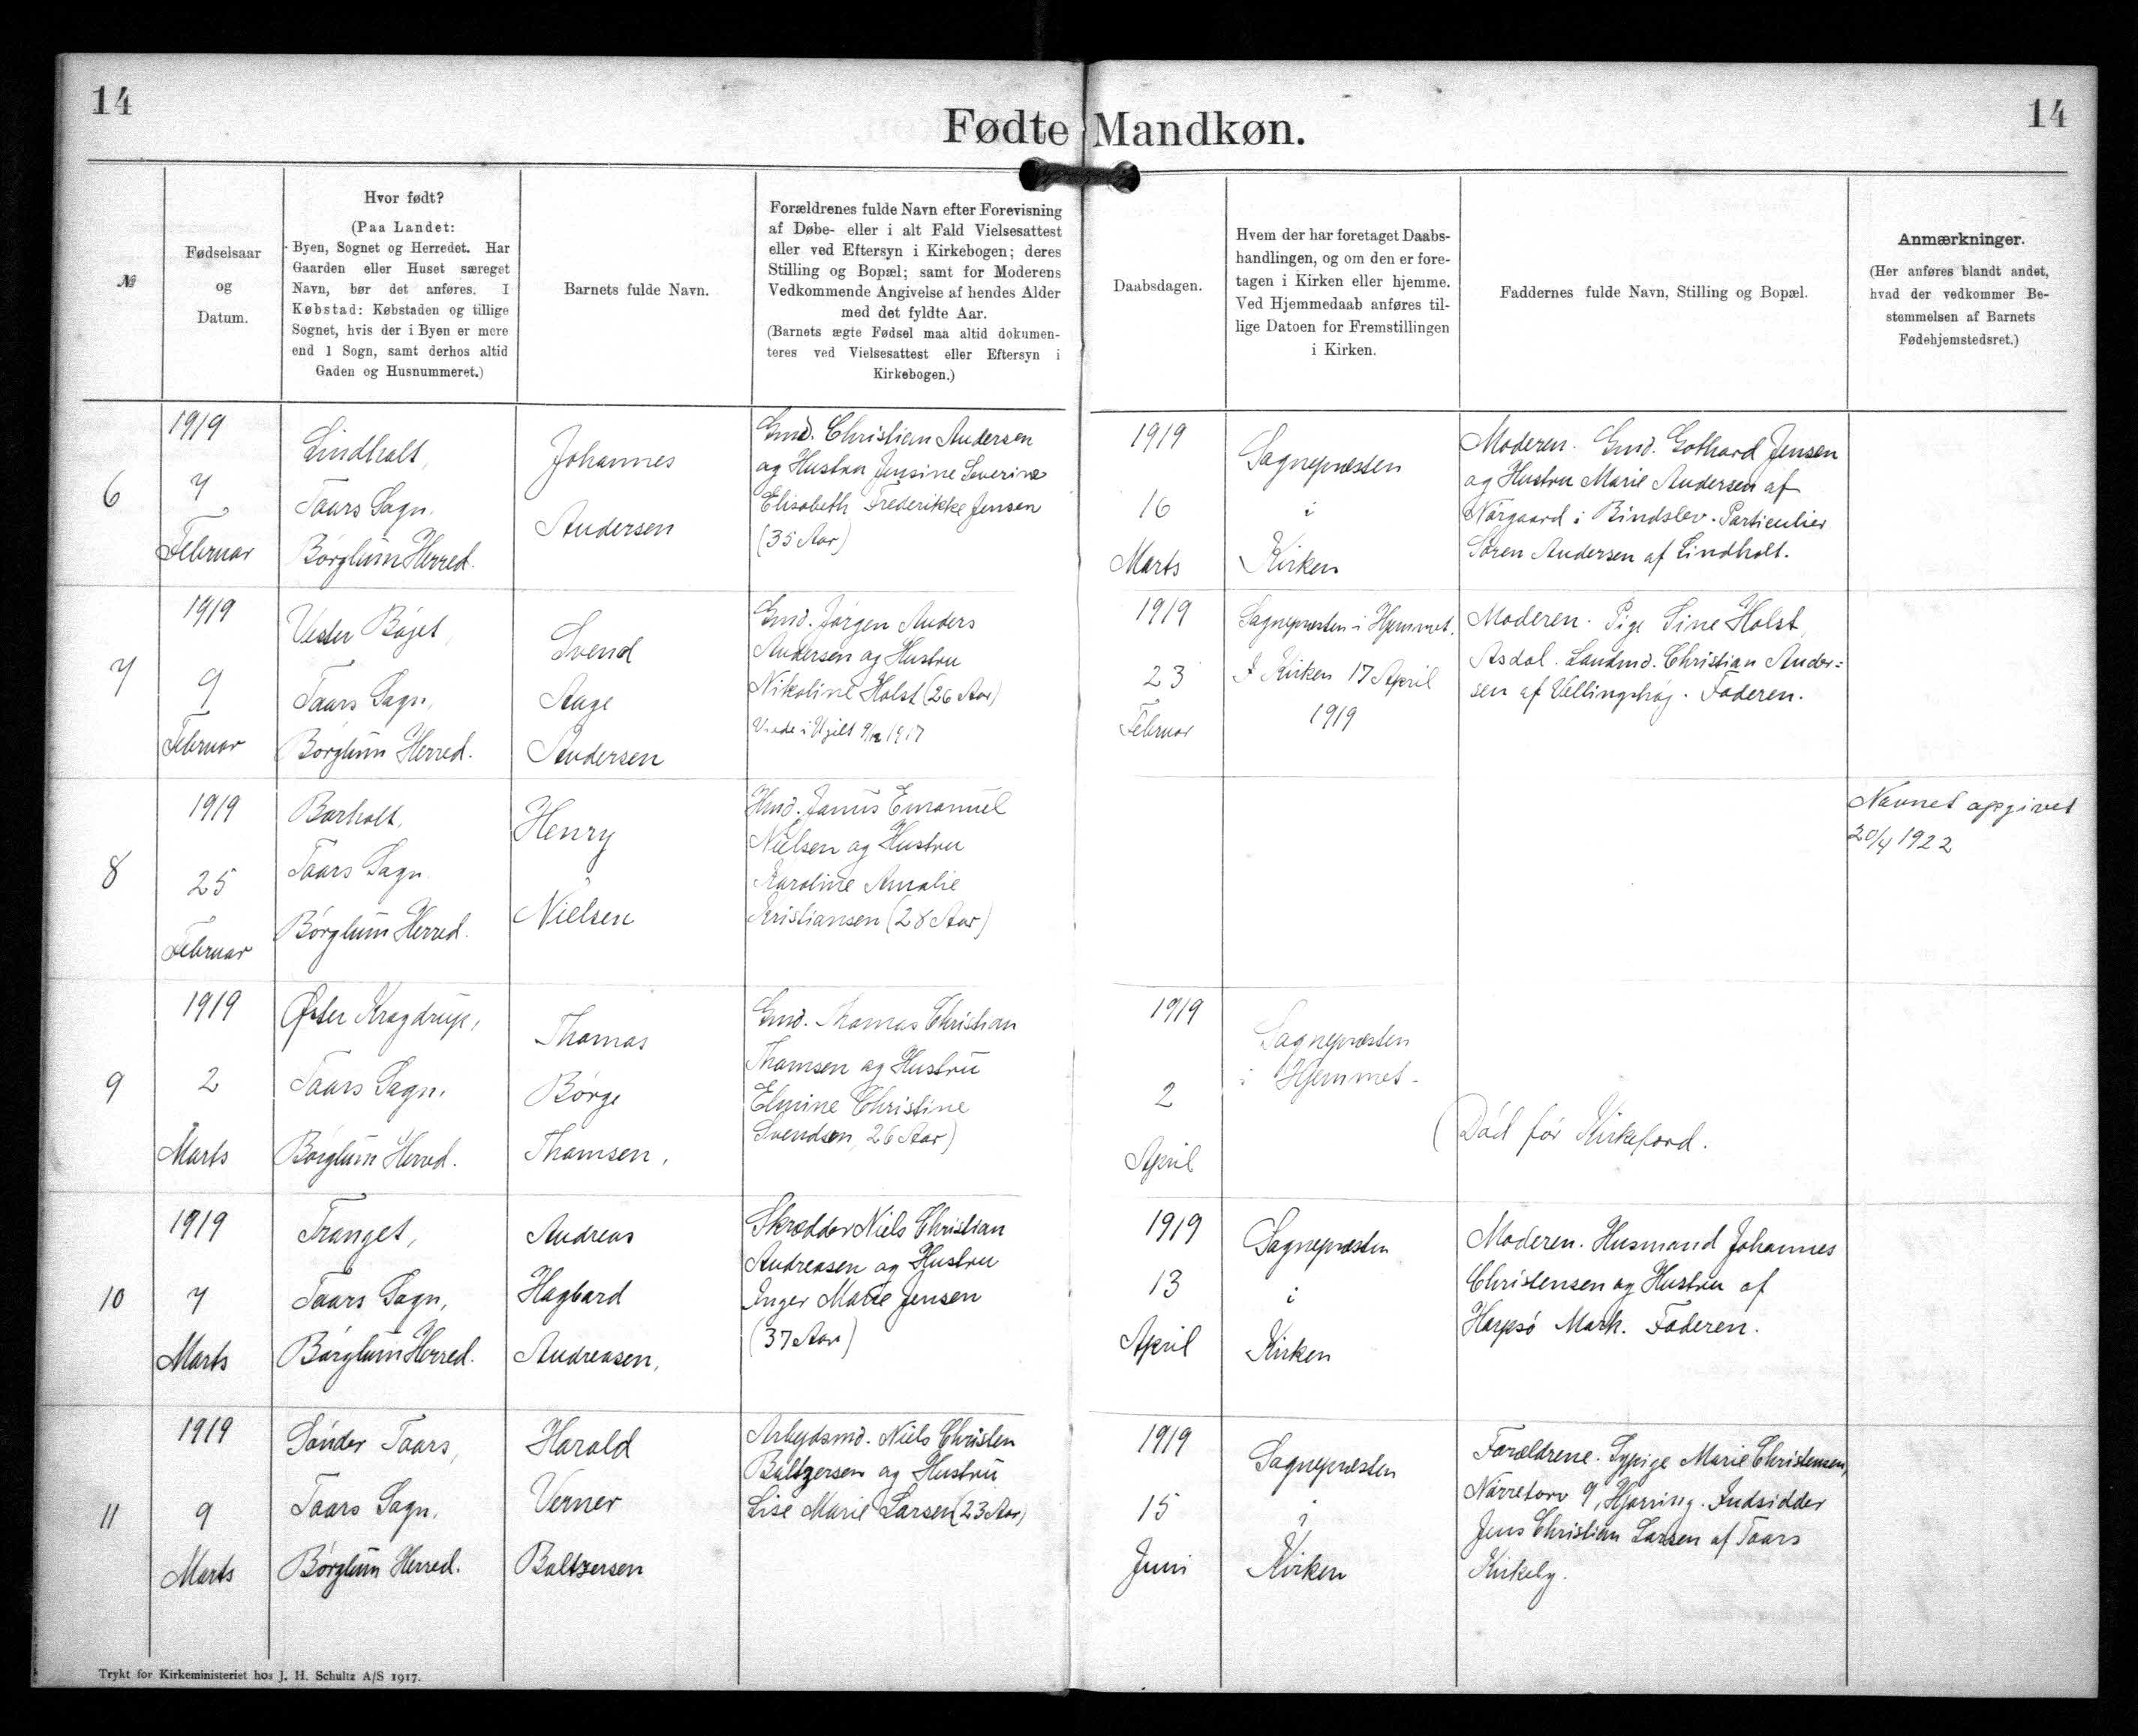 14
14
Fødte Mandkøn.
№
Fødselsaar
og
Datum.
Hvor født?
(Paa Landet:
Byen, Sognet og Herredet. Har
Gaarden eller Huset særeget
Navn, bør det anføres. I
Købstad: Købstaden og tillige
Sognet, hvis der i Byen er mere
end 1 Sogn, samt derhos altid
Gaden og Husnummeret.)
Barnets fulde Navn.
Forældrenes fulde Navn efter Forevisning
af Døbe- eller i alt Fald Vielsesattest
eller ved Eftersyn i Kirkebogen; deres
Stilling og Bopæl; samt for Moderens
Vedkommende Angivelse af hendes Alder
med det fyldte Aar.
(Barnets ægte Fødsel maa altid dokumen-
teres ved Vielsesattest eller Eftersyn i
Kirkebogen.)
Daabsdagen.
Hvem der har foretaget Daabs-
handlingen, og om den er fore-
tagen i Kirken eller hjemme.
Ved Hjemmedaab anføres til-
lige Datoen for Fremstillingen
i Kirken.
Faddernes fulde Navn, Stilling og Bopæl.
Anmærkninger.
(Her anføres blandt andet,
hvad der vedkommer Be-
stemmelsen af Barnets
Fødehjemstedsret.)
6
1919
7
Februar
Lindholt,
Taars Sogn.
Børglum Herred.
Johannes
Andersen
Gmd. Christian Andersen
og Hustru Jensine Severine
Elisabeth Frederikke Jensen
(35 Aar)
1919
16
Marts
Sognepræsten
i
Kirken
Moderen. Gmd. Gothard Jensen
og Hustru Marie Andersen af
Nørgaard i Bindslev. Particulier
Søren Andersen af Lindholt.
7
1919
9
Februar
Vester Bøjet,
Taars Sogn,
Børglum Herred.
Svend
Aage
Andersen
Gmd. Jørgen Anders
Andersen og Hustru
Nikoline Holst (26 Aar)
Viede i Ugilt 9/12 1917
1919
23
Februar
Sognepræsten i Hjemmet.
I Kirken 17 April
1919
Moderen. Pige Sine Holst,
Asdal. Landmd. Christian Ander=
sen af Vellingshøj. Faderen.
8
1919
25
Februar
Borholt,
Taars Sogn.
Børglum Herred.
Henry
Nielsen
Hmd. Janus Emanuel
Nielsen og Hustru
Karoline Amalie
Kristiansen (28 Aar)
Navnet opgivet
20/4 1922
9
1919
2
Marts
Øster Kragdrup,
Taars Sogn.
Børglum Herred.
Thomas
Børge
Thomsen,
Gmd. Thomas Christian
Thomsen og Hustru
Elmine Christine
Svendsen, 26 Aar)
1919
2
April
Sognepræsten
i Hjemmet.
(Død før Kirkefærd.
10
1919
7
Marts
Tranget,
Taars Sogn,
Børglum Herred.
Andreas
Hagbard
Andreasen,
Skrædder Niels Christian
Andreasen og Hustru
Inger Marie Jensen
(37 Aar)
1919
13
April
Sognepræsten
i
Kirken
Moderen. Husmand Johannes
Christensen og Hustru af
Harpsø Mark. Faderen.
11
1919
9
Marts
Sønder Taars,
Taars Sogn.
Børglum Herred.
Harald
Verner
Baltzersen
Arbejdsmd. Niels Christen
Baltzersen og Hustru
Lise Marie Larsen (23 Aar)
1919
15
Juni
Sognepræsten
i
Kirken
Forældrene. Sypige Marie Christensen,
Nørretorv 9, Hjørring. Indsidder
Jens Christian Larsen af Taars
Kirkeby.
Trykt for Kirkeministeriet hos J. H. Schultz A/S 1917.